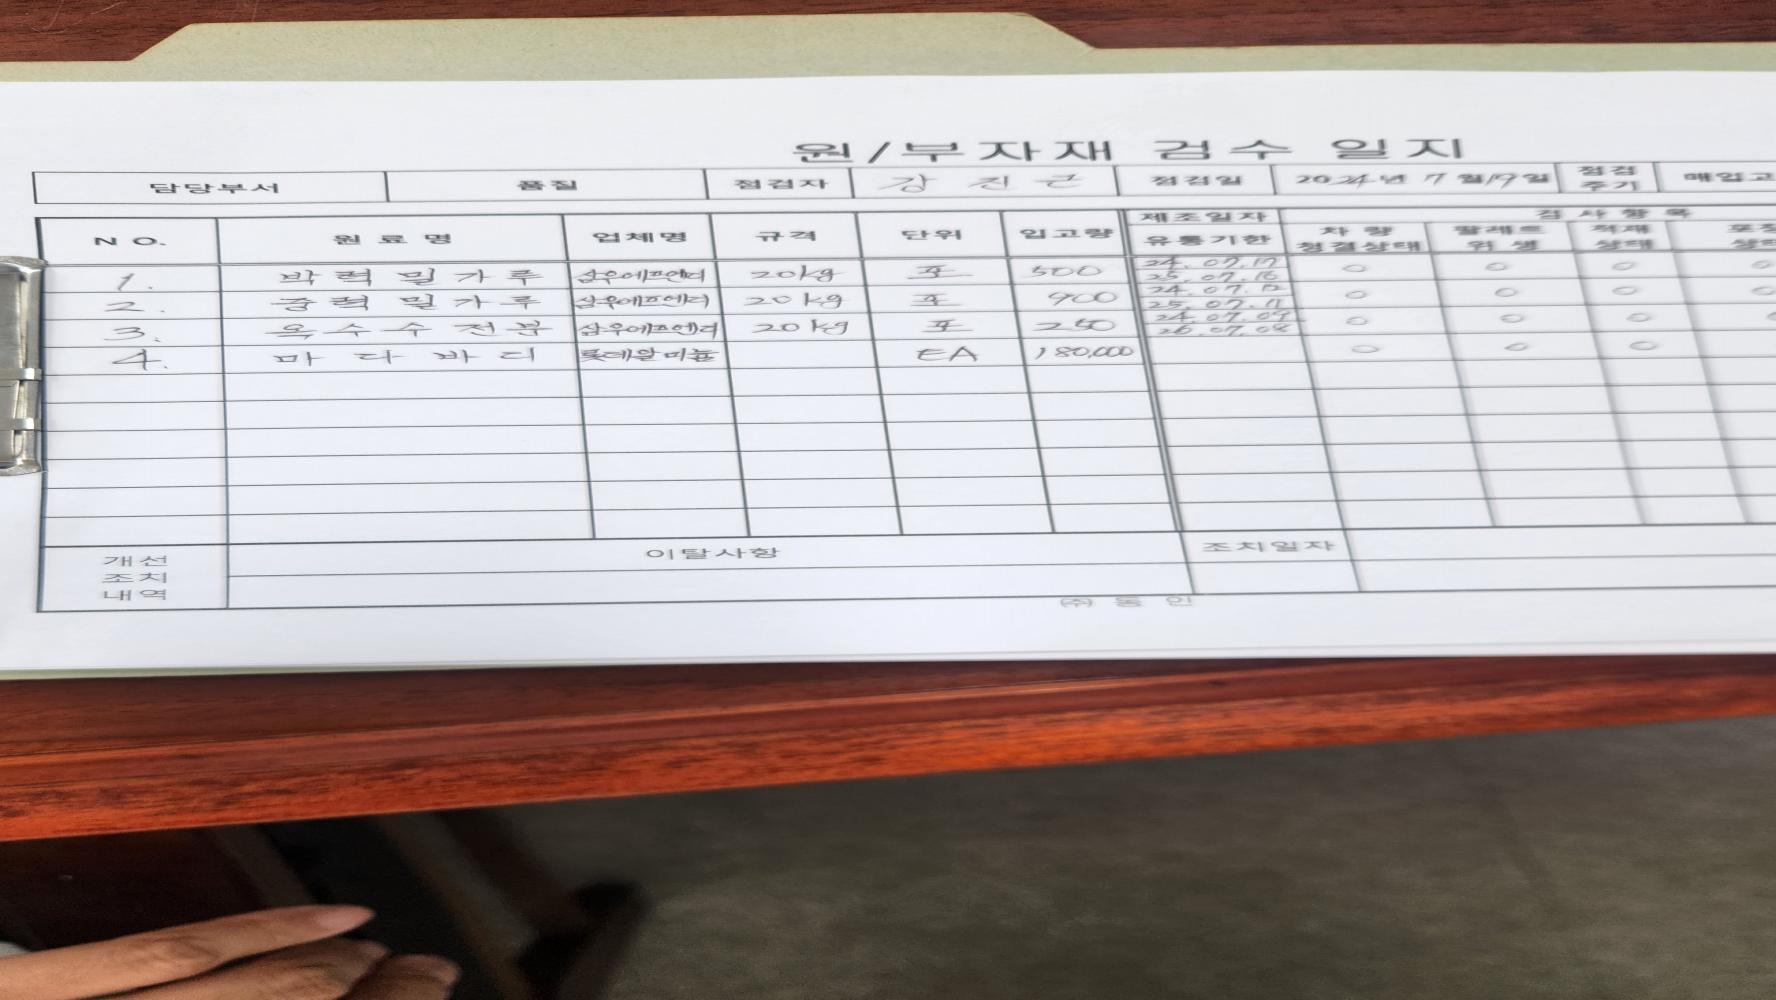 원/부자재 검수 일지
담당부서 품질 점검자 강진근 점검일 2024년 7월19일 점검주기 매입고
NO. 원료명 업체명 규격 단위 입고량 제조일자 유통기한 검사항목
차량 청결상태 팔레트 위생 적재 상태 포장 상태
1. 박력밀가루 삼우에프앤더 20kg 포 500 24.07.17 ○ ○ ○ ○
25.07.16
2. 중력밀가루 삼우에프앤더 20kg 포 900 24.07.12 ○ ○ ○ ○
25.07.11
3. 옥수수전분 삼우에프앤더 20kg 포 250 24.07.09 ○ ○ ○ ○
26.07.08
4. 마다바디 롯데알미늄 EA 180,000 ○ ○ ○
개선 조치 내역 이탈사항 조치일자
㈜ 동인